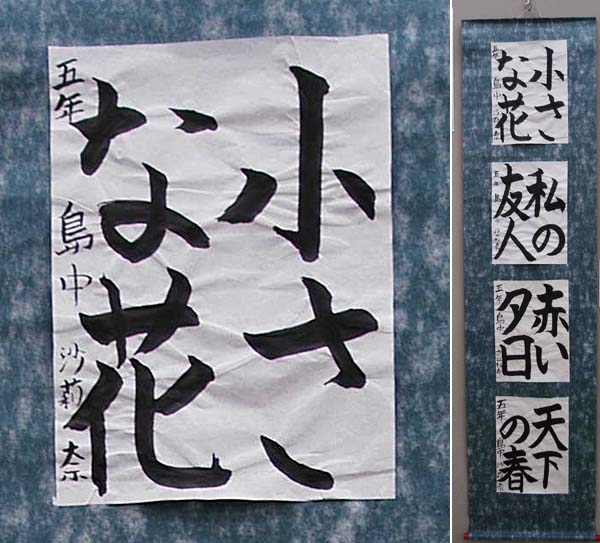 小さ
な花
五年 島中 沙莉奈
小さ
な花
五年 島中
私の
友人
五年
赤い
夕日
五年 島中
天下
の春
五年 島中